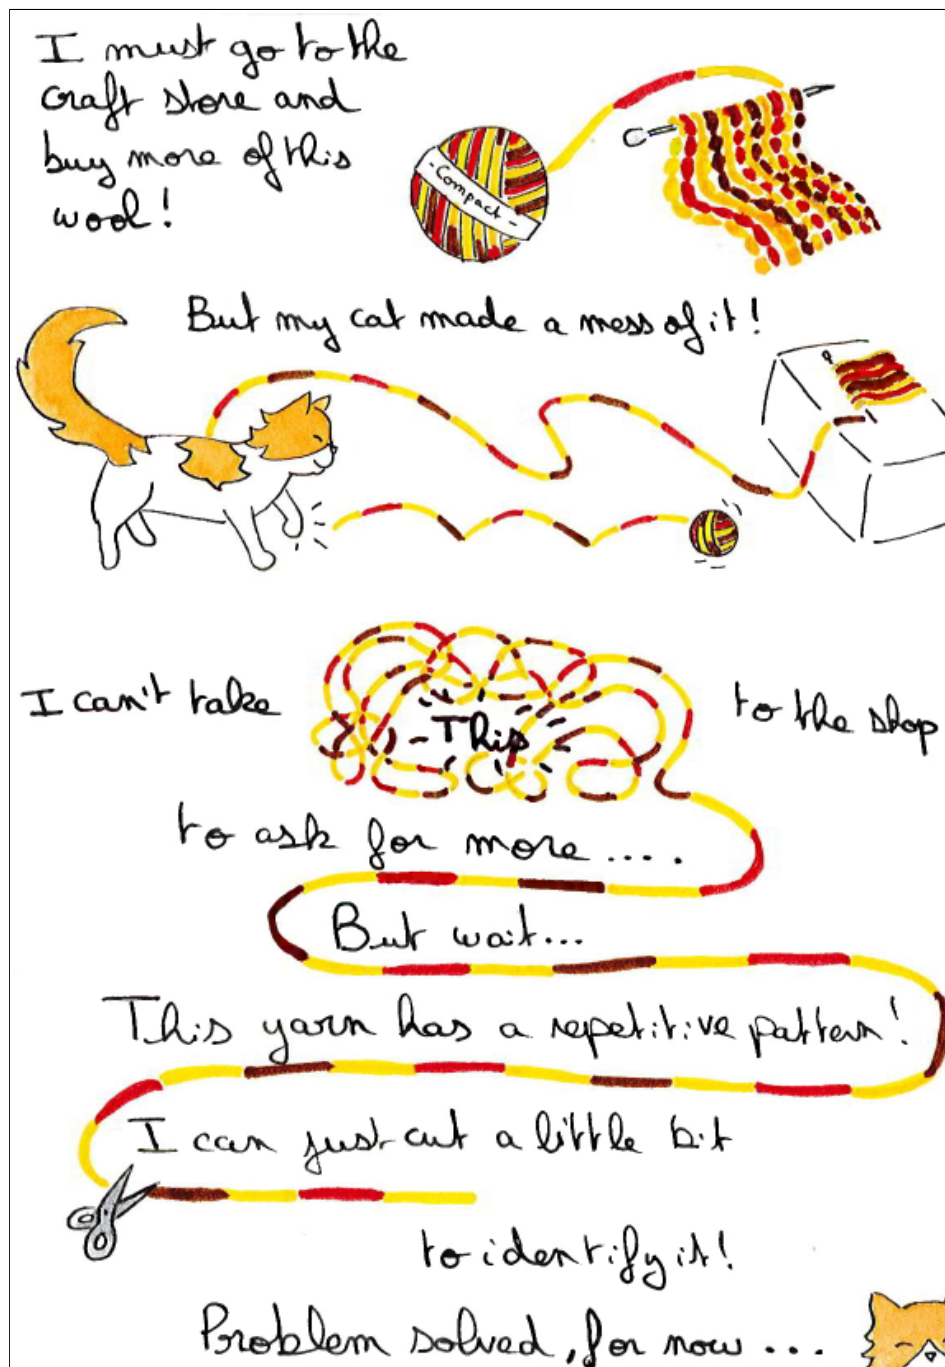 I must go to the
craft store and
buy more of this
wool!
- Compact -
But my cat made a mess of it!
I can't take
This
to the shop
to ask for more ....
But wait...
This yarn has a repetitive pattern!
I can just cut a little bit
to identify it!
Problem solved, for now ...